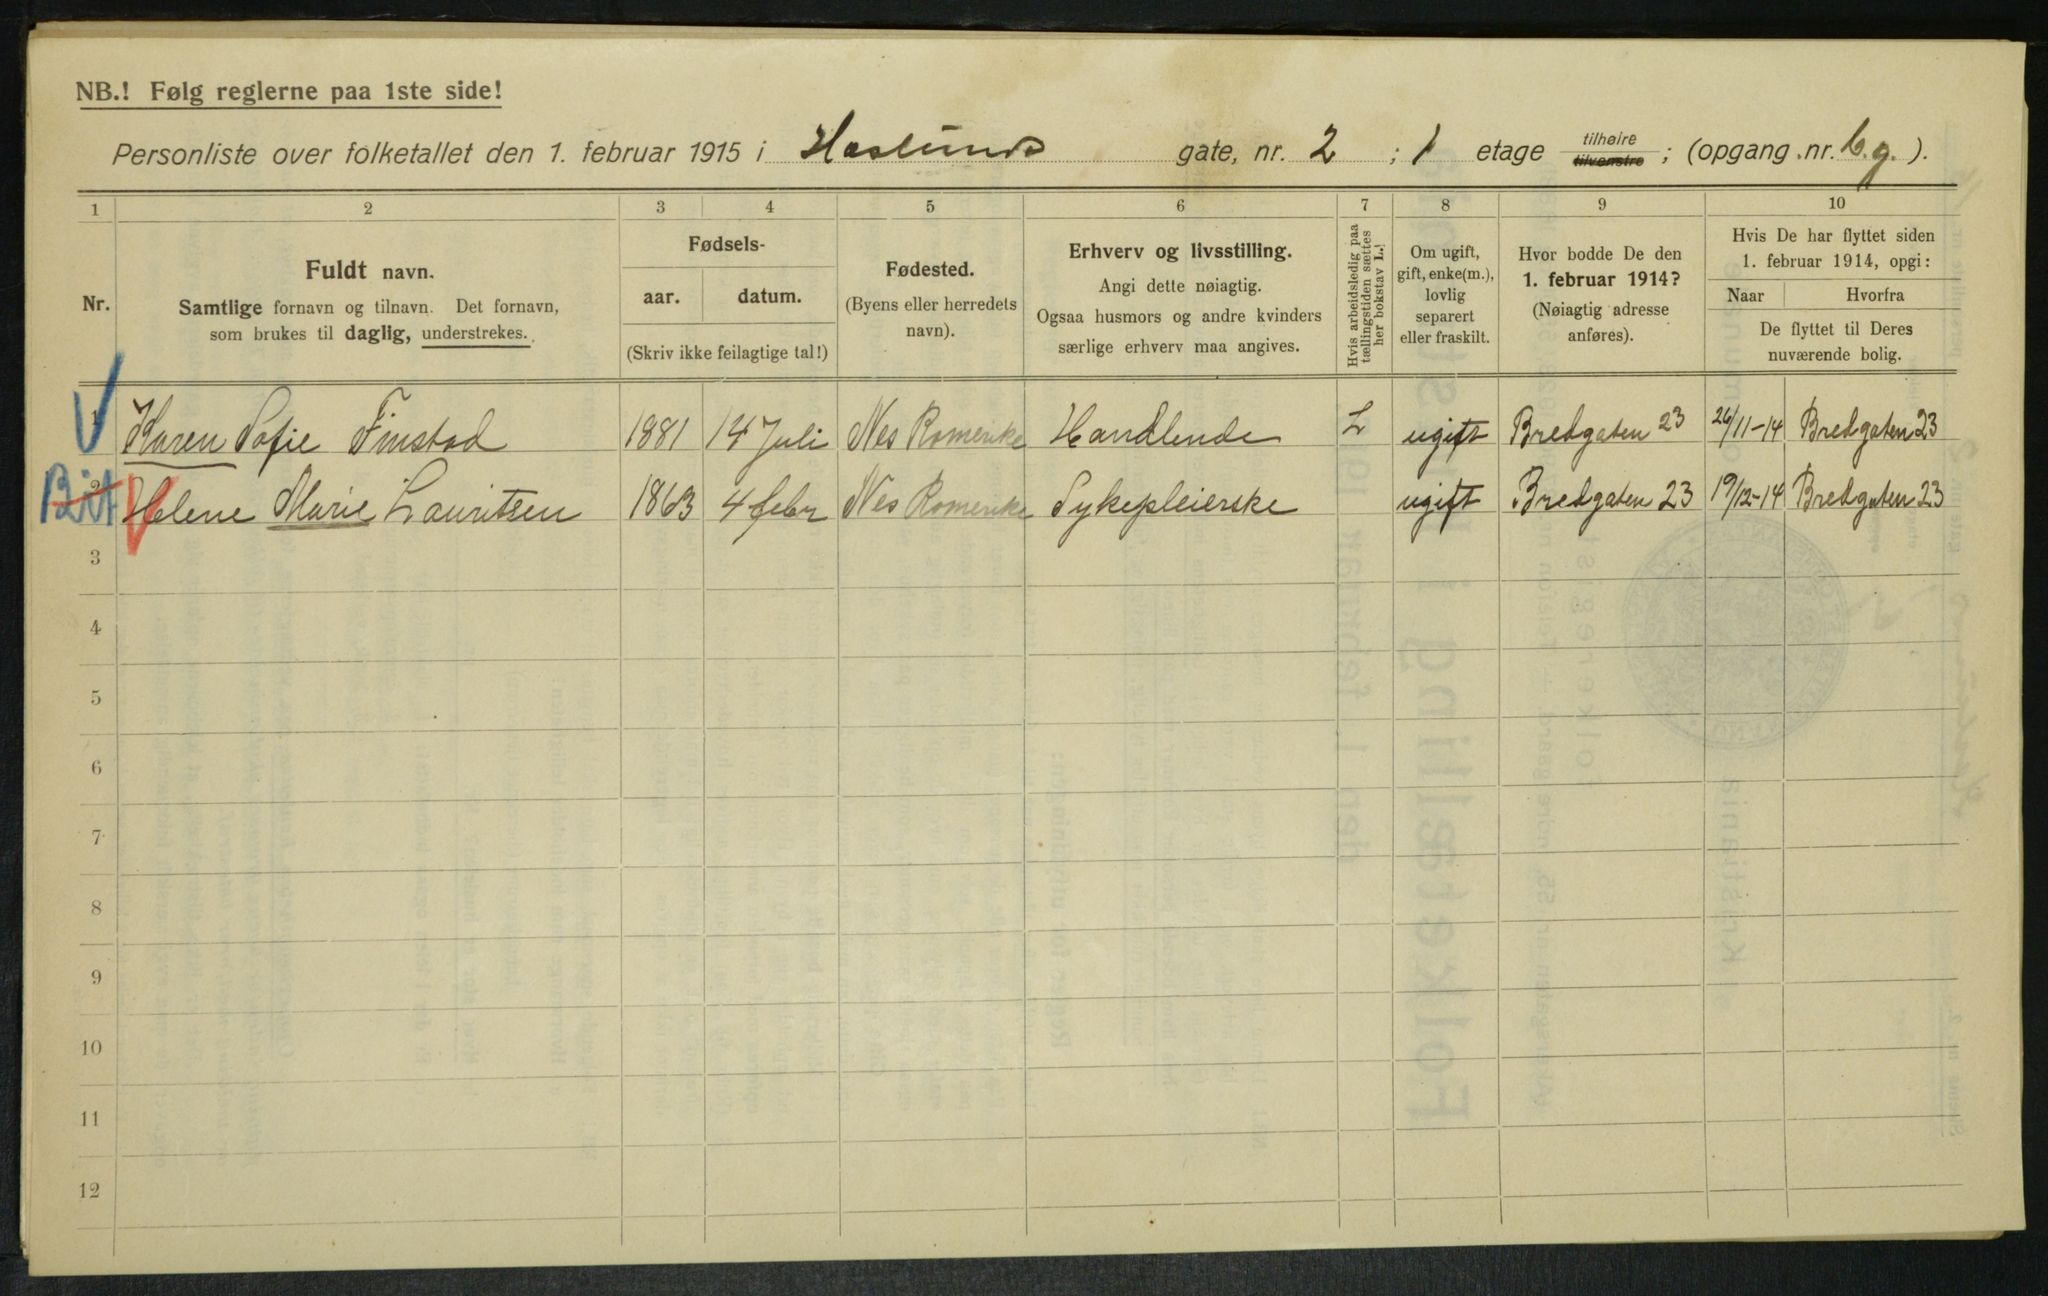 NB.! Følg reglerne paa 1ste side!
Personliste over folketallet den 1. februar 1915 i Haslunds gate, nr. 2 ; 1 etage tilhøire tilvenstre ; (opgang nr. b.g. ).
1 2 3 4 5 6 7 8 9 10
Nr.
Fuldt navn.
Samtlige fornavn og tilnavn. Det fornavn,
som brukes til daglig, understrekes.
Fødsels-
aar. datum.
(Skriv ikke feilagtige tal!)
Fødested.
(Byens eller herredets
navn).
Erhverv og livsstilling.
Angi dette nøiagtig.
Ogsaa husmors og andre kvinders
særlige erhverv maa angives.
Hvis arbeidsledig paa
tællingstiden sættes
her bokstav L.!
Om ugift,
gift, enke(m.),
lovlig
separert
eller fraskilt.
Hvor bodde De den
1. februar 1914?
(Nøiagtig adresse
anføres).
Hvis De har flyttet siden
1. februar 1914, opgi:
Naar Hvorfra
De flyttet til Deres
nuværende bolig.
1 Karen Sofie Finstad 1881 14 Juli Nes Romerike Handlende L ugift Bredgaten 23 26/11-14 Bredgaten 23
2 Helene Marie Lauritsen 1863 4 febr Nes Romerike Sykepleierske ugift Bredgaten 23 19/12-14 Bredgaten 23
3
4
5
6
7
8
9
10
11
12